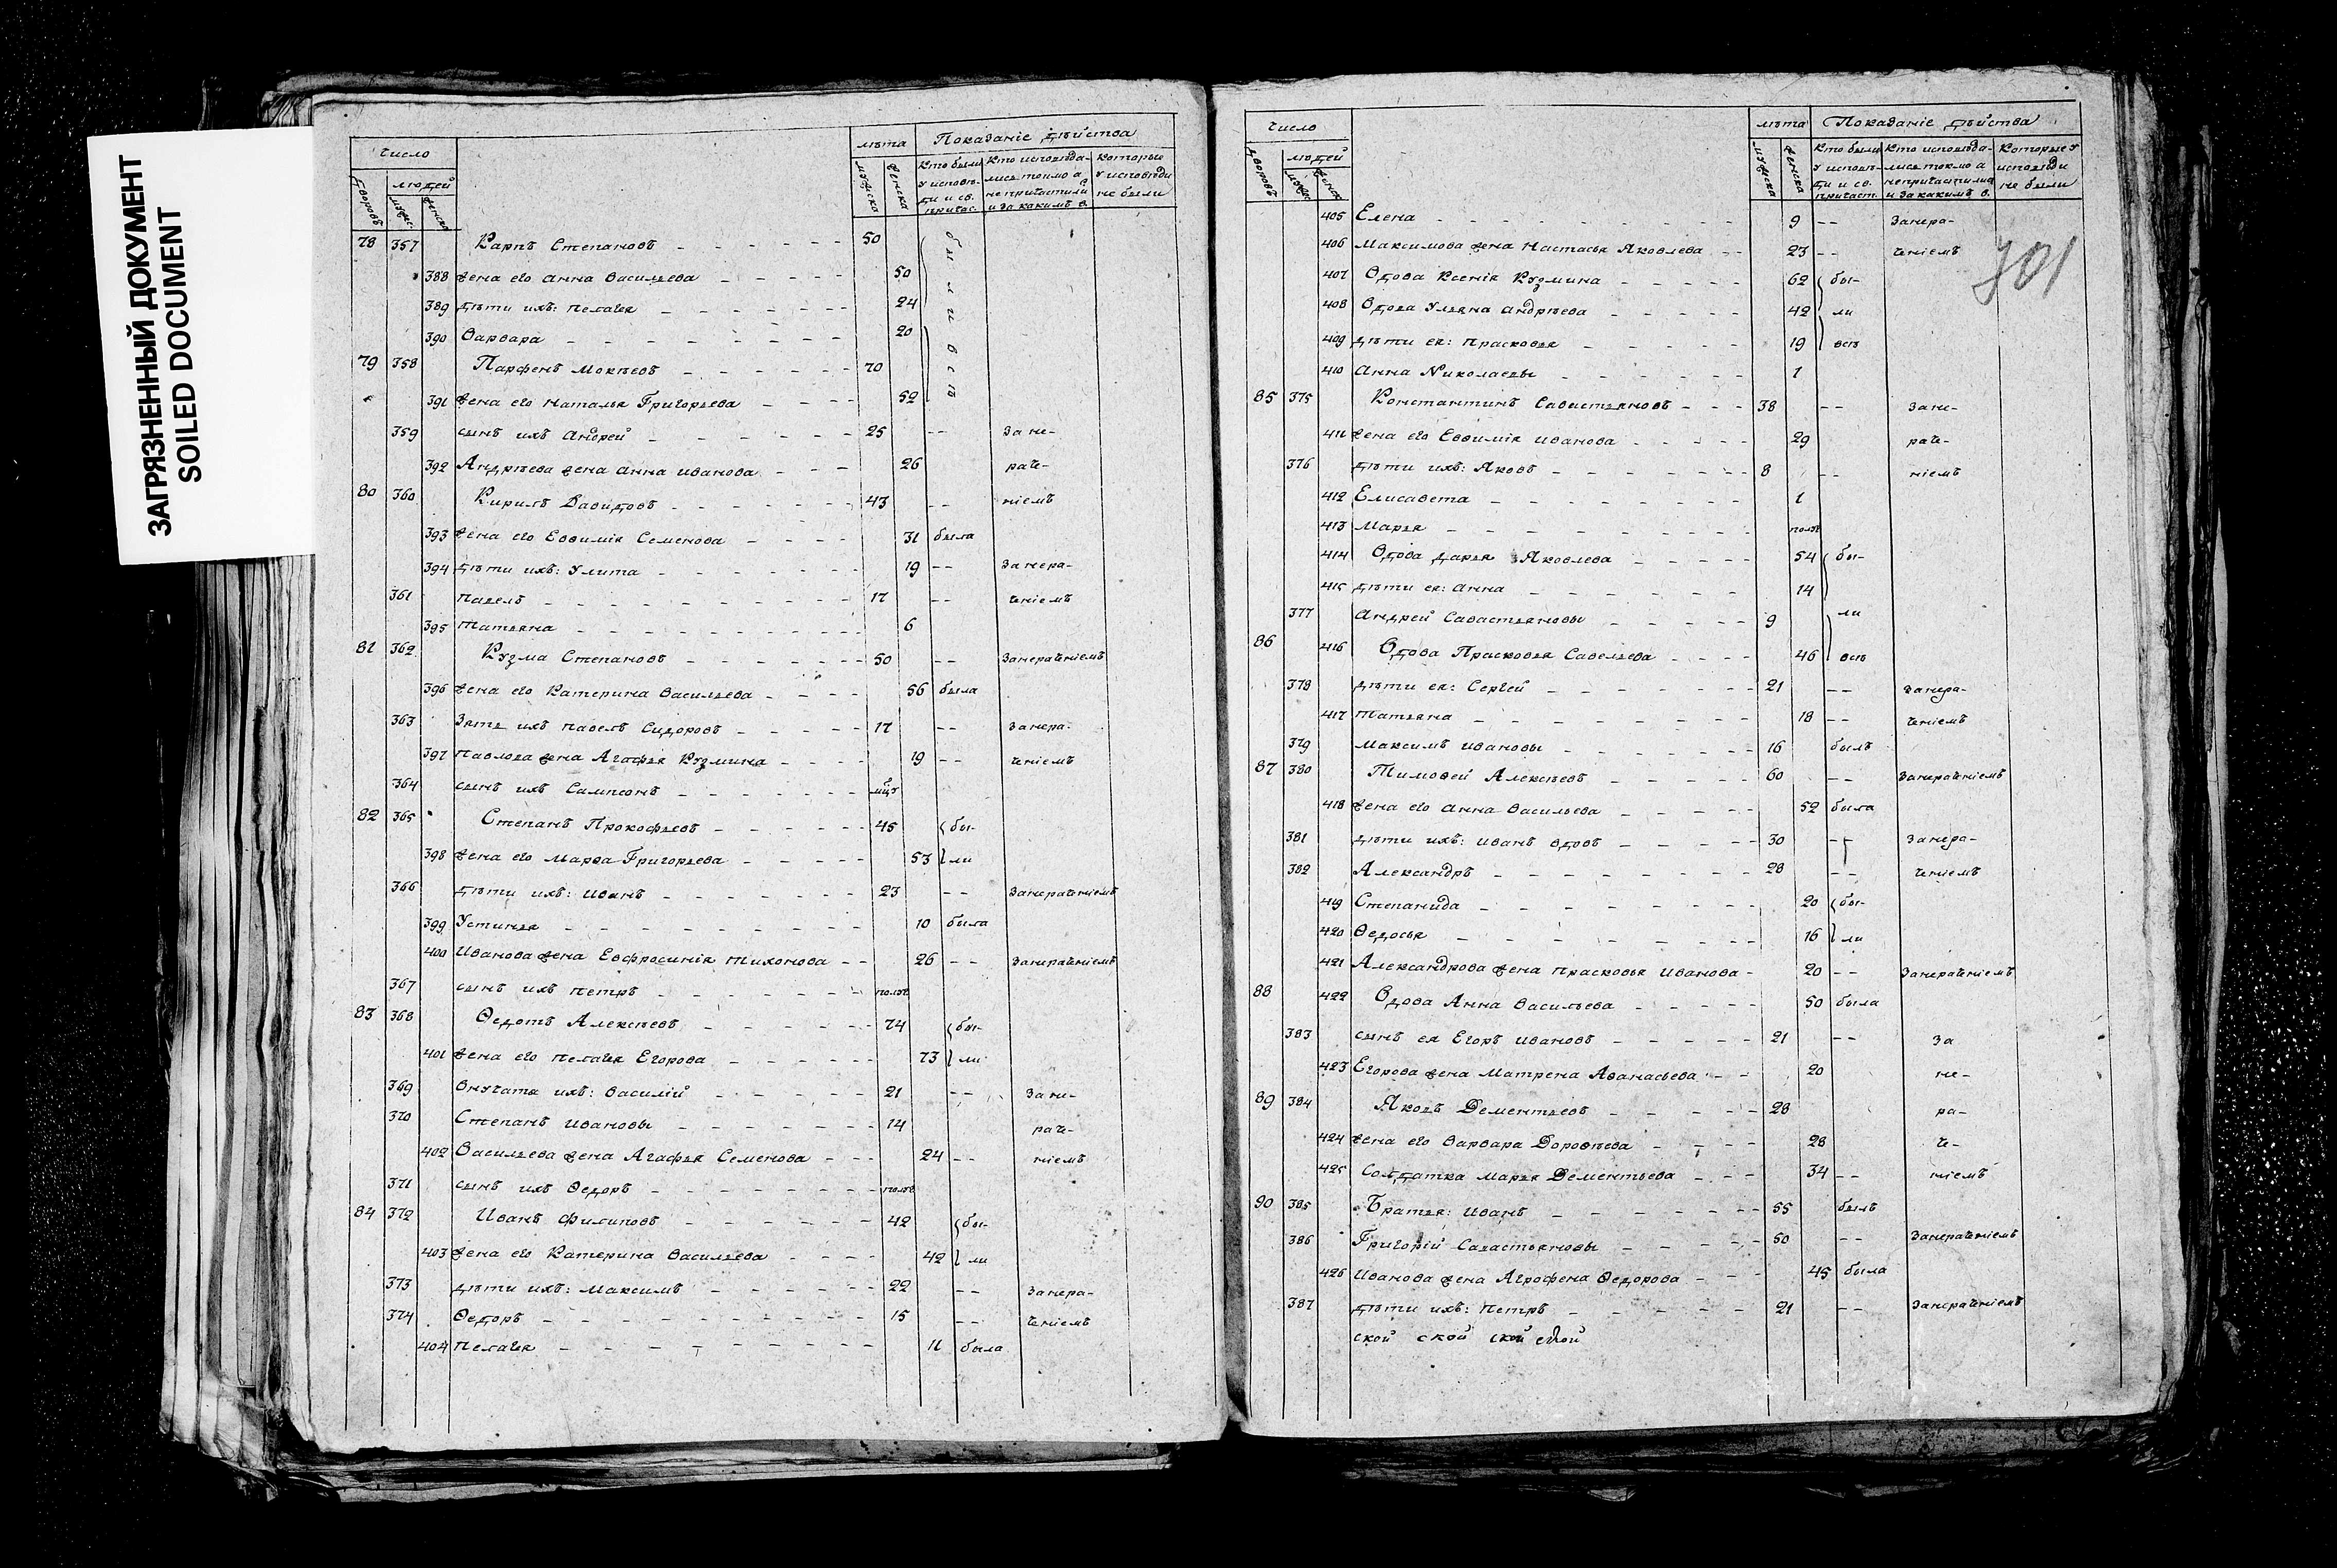 ЗАГРЯЗНЕННЫЙ ДОКУМЕНТ
SOILED DOCUMENT
Число лѣта Показаніе дѣйства
дворовъ людей мужеска женска Кто были у исповѣди и св. причас. Кто исповѣдались токмо а не причастились и за какимъ в. Которые у исповѣди не были
мужес. женск.
78 357 Карпъ Степановъ 50 были всѣ
388 жена его Анна Васильева 50
389 дѣти ихъ: Пелагея 24
390 Варвара 20
79 358 Парфенъ Мокѣевъ 70
391 жена его Наталья Григорьева 52
359 сынъ ихъ Андрей 25 -- За не-
392 Андрѣева жена Анна Иванова 26 раче-
80 360 Кирилъ Давидовъ 43 -- ніемъ
393 жена его Евѳимія Семенова 31 была
394 дѣти ихъ: Улита 19 -- За нера-
361 Павелъ 17 -- ченіемъ
395 Татьяна 6
81 362 Кузма Степановъ 50 -- Занераченіемъ
396 жена его Катерина Васильева 56 была
363 Зять ихъ Павелъ Сидоровъ 17 -- Занера-
397 Павлова жена Агафья Кузмина 19 -- ченіемъ
364 сынъ ихъ Сампсонъ мцъ
82 365 Степанъ Прокофьевъ 45 бы-
398 жена его Марѳа Григорьева 53 ли
366 дѣти ихъ: Иванъ 23 -- Занераченіемъ
399 Устинья 10 была
400 Иванова жена Евфросинія Тихонова 26 -- Занераченіемъ
367 сынъ ихъ Петръ полъ
83 368 Ѳедотъ Алексѣевъ 74 бы-
401 жена его Пелагея Егорова 73 ли
369 Внучата ихъ: Василій 21 -- За не-
370 Степанъ Ивановы 14 раче-
402 Васильева жена Агафья Семенова 24 -- ніемъ
371 сынъ ихъ Ѳедоръ полъ
84 372 Иванъ Филиповъ 42 бы-
403 жена его Катерина Васильева 42 ли
373 дѣти ихъ: Максимъ 22 -- Занера-
374 Ѳедоръ 15 -- ченіемъ
404 Пелагея 11 была
Число лѣта Показаніе дѣйства
дворовъ людей мужеска женска Кто были у исповѣди и св. причаст. Кто исповѣдались токмо а не причастились и за какимъ в. Которые у исповѣди не были
мужес. женск.
701
405 Елена 9 -- Занера-
406 Максимова жена Настасья Яковлева 23 -- ченіемъ
407 Вдова Ксенія Кузмина 62 бы-
408 Вдова Ульяна Андрѣева 42 ли
409 дѣти ея: Прасковья 19 всѣ
410 Анна Николаевы 1
85 375 Константинъ Савастьяновъ 38 -- За не-
411 жена его Евѳимія Иванова 29 раче-
376 дѣти ихъ: Яковъ 8 -- ніемъ
412 Елисавета 1
413 Марья полъ
414 Вдова Дарья Яковлева 54 бы-
415 дѣти ея: Анна 14
377 Андрей Савастьяновы 9 ли
86 416 Вдова Прасковья Савельева 46 всѣ
378 дѣти ея: Сергей 21 -- Занера-
417 Татьяна 18 -- ченіемъ
379 Максимъ Ивановы 16 былъ
87 380 Тимоѳей Алексѣевъ 60 -- Занераченіемъ
418 жена его Анна Васильева 52 была
381 дѣти ихъ: Иванъ вдовъ 30 -- Занера-
382 Александръ 28 -- ченіемъ
419 Степанида 20 бы-
420 Ѳедосья 16 ли
421 Александрова жена Прасковья Иванова 20 -- Занераченіемъ
88 422 Вдова Анна Васильева 50 была
383 сынъ ея Егоръ Ивановъ 21 -- За
423 Егорова жена Матрена Аѳанасьева 20 не-
89 384 Яковъ Дементьевъ 28 ра-
424 жена его Варвара Дороѳѣева 28 че-
425 Солдатка Марья Дементьева 34 -- ніемъ
90 385 Братья: Иванъ 55 былъ
386 Григорій Савастьяновы 50 -- Занераченіемъ
426 Иванова жена Агрофена Ѳедорова 45 была
387 дѣти ихъ: Петръ 21 -- Занераченіемъ
ской ской ской